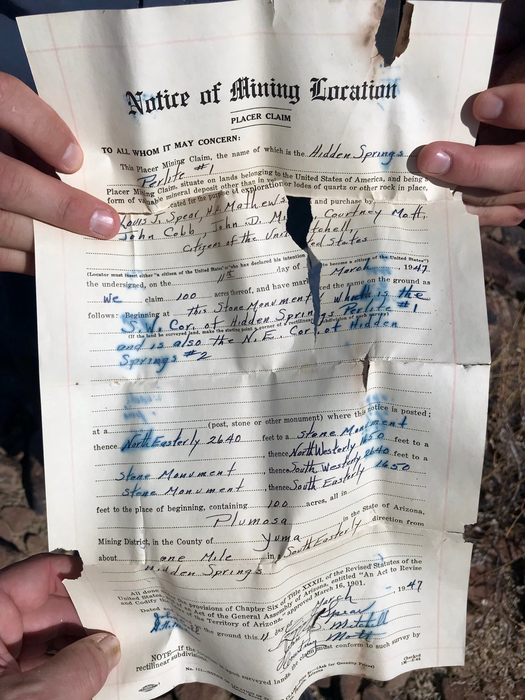 Notice of Mining Location
PLACER CLAIM
TO ALL WHOM IT MAY CONCERN:
This Placer Mining Claim, the name of which is the Hidden Springs
Perlite #1
Placer Mining Claim, situate on lands belonging to the United States of America, and being a
form of valuable mineral deposit other than in veins or lodes of quartz or other rock in place,
located for the purpose of exploration and purchase by
Louis J. Spear, Mathews Courtney Mott,
John Cobb, John D. Mitchell,
Citizens of the United States
(Locator must either "a citizen of the United States" or "who has declared his intention to become a citizen of the United States")
the undersigned, on the 11th day of March, 1947
We claim 100 acres thereof, and have marked the same on the ground as
follows: Beginning at This Stone Monument which is the
S.W. Cor. of Hidden Springs Perlite #1
(If the land be surveyed land, make the starting point a corner of a rectilinear subdivision of survey)
and is also the N.E. Cor. of Hidden
Springs #2
at a (post, stone or other monument) where this notice is posted;
thence North Easterly 2640 feet to a Stone Monument
, thence North Westerly 1650 feet to a
Stone Monument, thence South Westerly 2640 feet to a
Stone Monument, thence South Easterly 1650
feet to the place of beginning, containing 100 acres, all in
Plumosa
Mining District, in the County of Yuma in the State of Arizona,
about one Mile in a South Easterly direction from
Hidden Springs.
All done provisions of Chapter Six of Title XXXII, of the Revised Statutes of the
United States Act of the General Assembly of Arizona, entitled "An Act to Revise
and Codify the Territory of Arizona," approved March 16, 1901.
Dated the ground this 11 day of March, 1947
Spear
Mitchell
Mott
NOTE—If the surveyed lands, the must conform to such survey by
rectilinear subdivisions